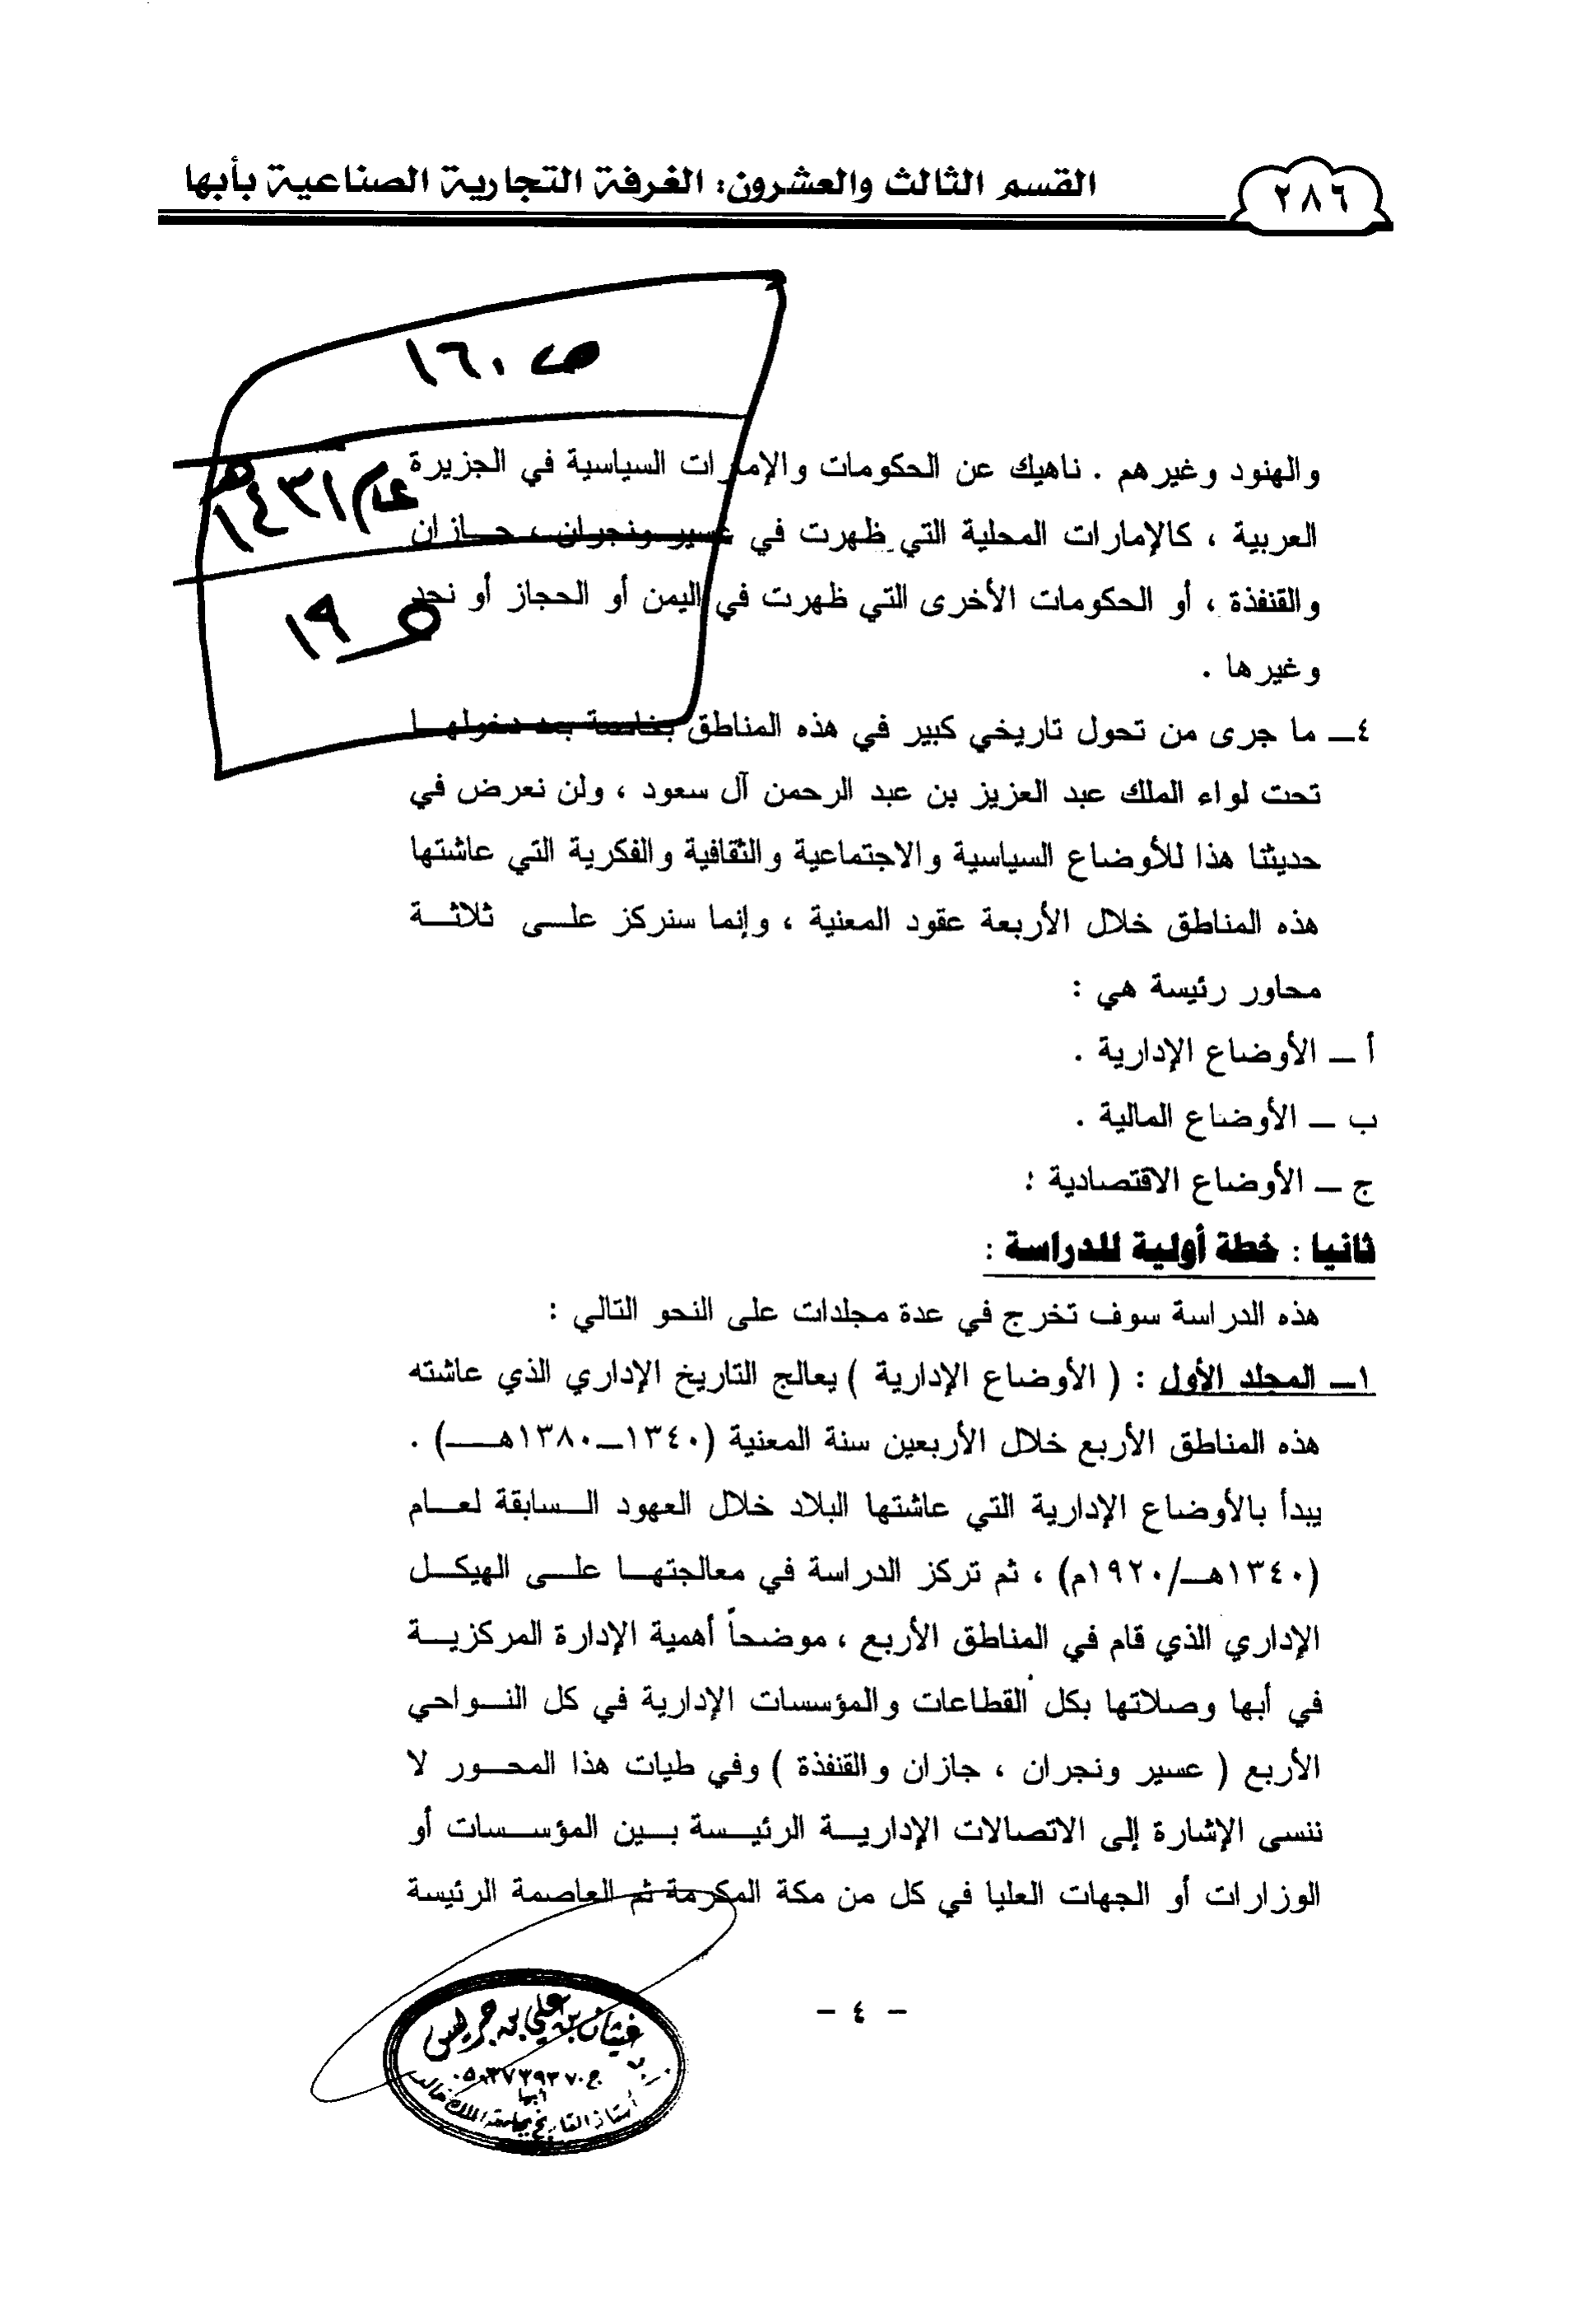 ٢٨٦
القسم الثالث والعشرون: الغرفة التجارية الصناعية بأبها
١٦٠
عام ١٤٣١هـ
ص ١٩
والهنود وغيرهم . ناهيك عن الحكومات والإمارات السياسية في الجزيرة
العربية ، كالإمارات المحلية التي ظهرت في عسير ونجران ، جـازان
والقنفذة ، أو الحكومات الأخرى التي ظهرت في اليمن أو الحجاز أو نجد
وغيرها .
٤ــ ما جرى من تحول تاريخي كبير في هذه المناطق بخاصة بعد دخولهـا
تحت لواء الملك عبد العزيز بن عبد الرحمن آل سعود ، ولن نعرض في
حديثنا هذا للأوضاع السياسية والاجتماعية والثقافية والفكرية التي عاشتها
هذه المناطق خلال الأربعة عقود المعنية ، وإنما سنركز علـى ثلاثـة
محاور رئيسة هي :
أ ــ الأوضاع الإدارية .
ب ــ الأوضاع المالية .
ج ــ الأوضاع الاقتصادية :
ثانيا : خطة أولية للدراسة :
هذه الدراسة سوف تخرج في عدة مجلدات على النحو التالي :
١ــ المجلد الأول : ( الأوضاع الإدارية ) يعالج التاريخ الإداري الذي عاشته
هذه المناطق الأربع خلال الأربعين سنة المعنية (١٣٤٠ــ١٣٨٠هـــ) .
يبدأ بالأوضاع الإدارية التي عاشتها البلاد خلال العهود الـسابقة لعـام
(١٣٤٠هــ/١٩٢٠م) ، ثم تركز الدراسة في معالجتهـا علـى الهيكـل
الإداري الذي قام في المناطق الأربع ، موضحاً أهمية الإدارة المركزيـة
في أبها وصلاتها بكل القطاعات والمؤسسات الإدارية في كل النـواحي
الأربع ( عسير ونجران ، جازان والقنفذة ) وفي طيات هذا المحـور لا
ننسى الإشارة إلى الاتصالات الإداريـة الرئيـسة بـين المؤسـسات أو
الوزارات أو الجهات العليا في كل من مكة المكرمة ثم العاصمة الرئيسة
- ٤ -
غيثان بن علي بن جريس
أبها
أستاذ التاريخ بجامعة الملك خالد